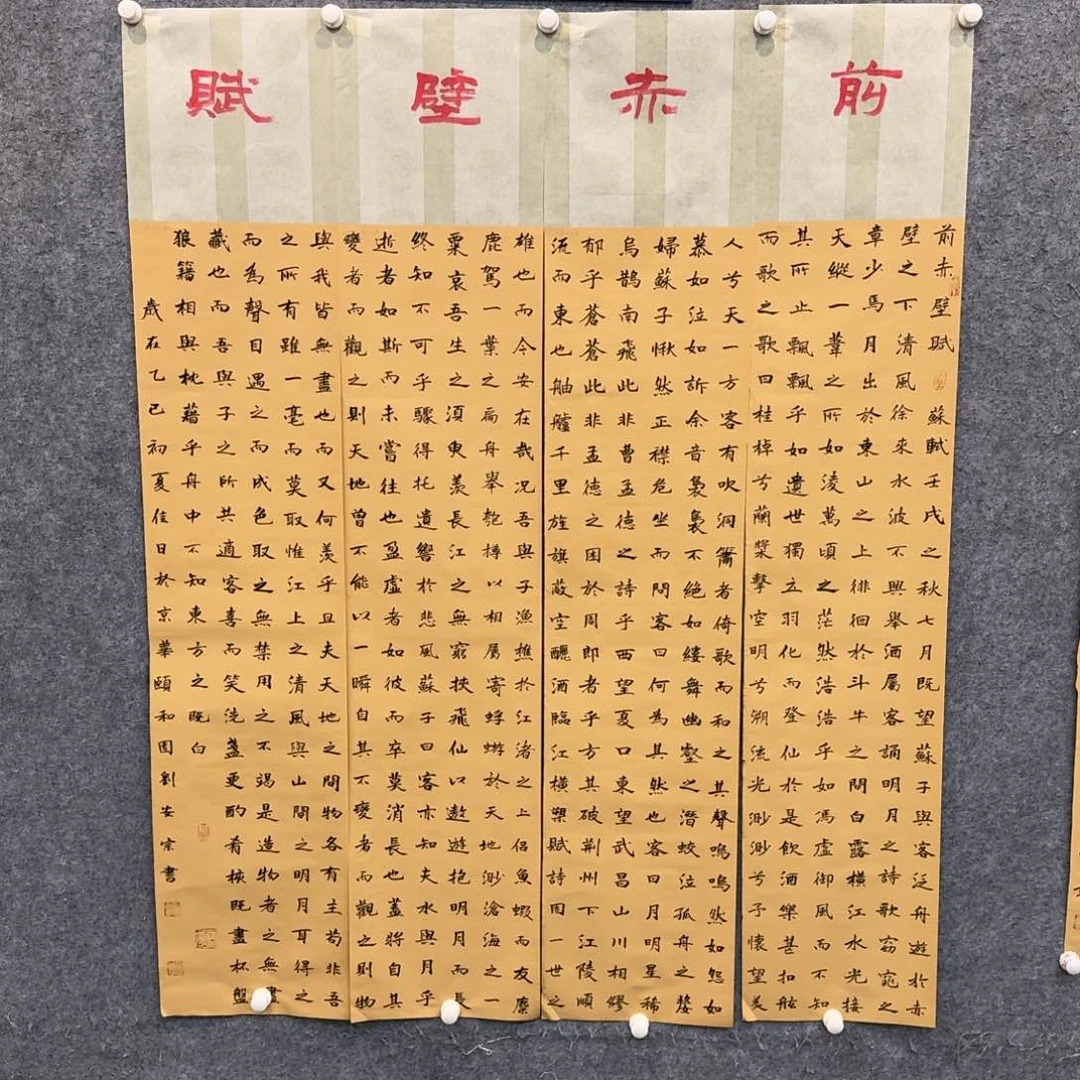 前赤壁賦
前赤壁賦蘇賦壬戌之秋七月既望蘇子與客泛舟遊於赤
壁之下清風徐來水波不興舉酒屬客誦明月之詩歌窈窕之
章少焉月出於東山之上徘徊於斗牛之間白露橫江水光接
天縱一葦之所如凌萬頃之茫然浩浩乎如馮虛御風而不知
其所止飄飄乎如遺世獨立羽化而登仙於是飲酒樂甚扣舷
而歌之歌曰桂棹兮蘭槳擊空明兮溯流光渺渺兮予懷望美
人兮天一方客有吹洞簫者倚歌而和之其聲嗚嗚然如怨如
慕如泣如訴余音裊裊不絕如縷舞幽壑之潛蛟泣孤舟之嫠
婦蘇子愀然正襟危坐而問客曰何為其然也客曰月明星稀
烏鵲南飛此非曹孟德之詩乎西望夏口東望武昌山川相繆
郁乎蒼蒼此非孟德之困於周郎者乎方其破荊州下江陵順
流而東也舳艫千里旌旗蔽空釃酒臨江橫槊賦詩固一世之
雄也而今安在哉況吾與子漁樵於江渚之上侶魚蝦而友麋
鹿駕一葉之扁舟舉匏樽以相屬寄蜉蝣於天地渺滄海之一
粟哀吾生之須臾羨長江之無窮挾飛仙以遨遊抱明月而長
終知不可乎驟得托遺響於悲風蘇子曰客亦知夫水與月乎
逝者如斯而未嘗往也盈虛者如彼而卒莫消長也蓋將自其
變者而觀之則天地曾不能以一瞬自其不變者而觀之則物
與我皆無盡也而又何羨乎且夫天地之間物各有主苟非吾
之所有雖一毫而莫取惟江上之清風與山間之明月耳得之
而為聲目遇之而成色取之無禁用之不竭是造物者之無盡
藏也而吾與子之所共適客喜而笑洗盞更酌肴核既盡杯盤
狼籍相與枕藉乎舟中不知東方之既白
歲在乙巳初夏佳日於京華頤和園劉安宗書